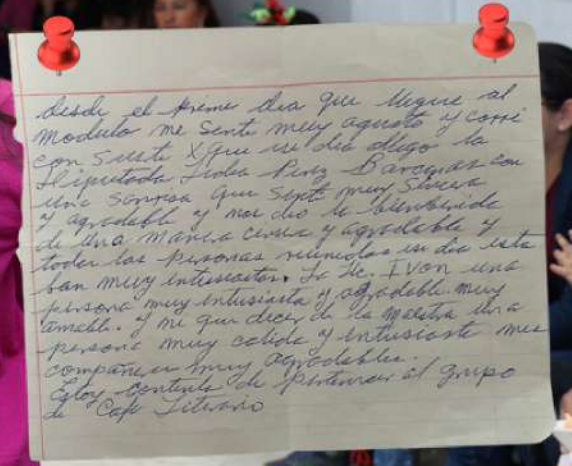 desde el primer dia que llegue al
modulo me senti muy agusto y corri
con suerte Xque ese dia llego la
Diputada Lidia Perez Barcenas con
una sonrisa que senti muy sincera
y agradable y nos dio la bienbenida
de una manera and agradable y
todas las personas reunidas ese dia esta
ban muy entusiastas. La Lic. Ivon una
persona muy entusiasta y agradable muy
amable. y ni que decir de la maestra una
persona muy calida y entusiasta mis
compañeras muy agradables.
Estoy contenta de pertenecer al grupo
de Cafe Literario